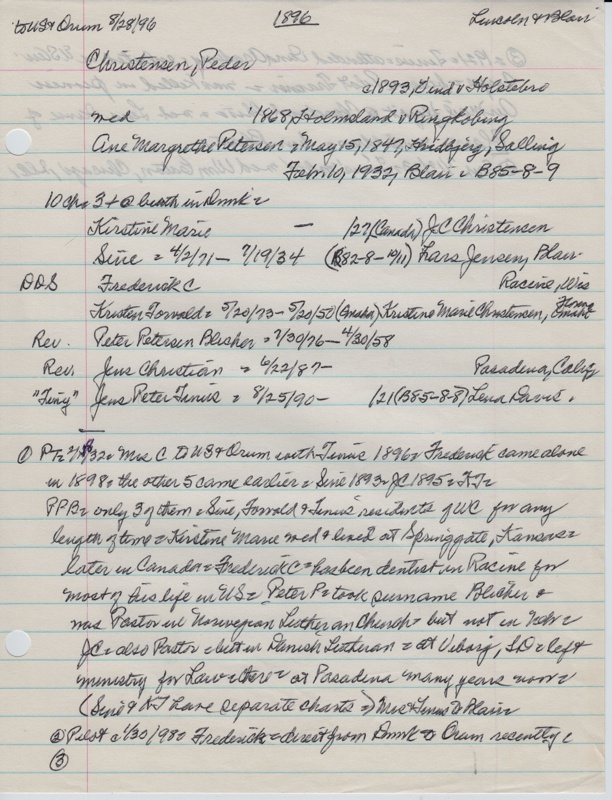 to US & Orum 8/28/96 1896 Lincoln & Blair
Christensen, Peder
c1893, Lind v Holstebro
med 1868, Holmsland v Ringkobing
Ane Margrethe Petersen = May 15, 1847, Hvidbjerg, Salling
Feb. 10, 1932, Blair = B85-8-9
10 ch = 3 + @ birth in Dnmk =
Kirstine Marie — /27 (Canada) J.C. Christensen
Sine = 4/2/71 — 7/19/34 (B82-8-10/11) Lars Jensen, Blair
DDS Frederick C Racine, Wis
Kristen Torvald = 5/20/73 — 5/20/50 (Omaha) Kristine Marie Christensen, Omaha
Rev. Peter Petersen Blicher = 7/30/76 — 4/30/58
Rev. Jens Christian = 6/22/87 — Pasadena, Calif
"Tiny" Jens Peter Tinus = 8/25/90 — /21 (B85-8-8) Lena Davis.
① PT = 32 = Mrs C to US & Orum with Tinus 1896 = Frederick came alone
in 1898 = the other 5 came earlier = Sine 1893 = JC 1895 = KT =
PPB = only 3 of them = Sine, Torvald & Tinus residents of WC for any
length of time = Kirstine Marie med & lived at Springgate, Kansas =
later in Canada = Frederick C = has been dentist in Racine for
most of his life in US = Peter P = took surname Blicher &
was Pastor in Norwegian Lutheran Church = but not in Neb =
JC = also Pastor = but in Danish Lutheran = at Viborg, SD = left
ministry for Law = there = at Pasadena many years now =
(Sine & KT have separate charts =) Mrs & Tinus to Blair =
② Pilot 1/30/98 = Frederick = direct from Dnmk to Orum recently =
③